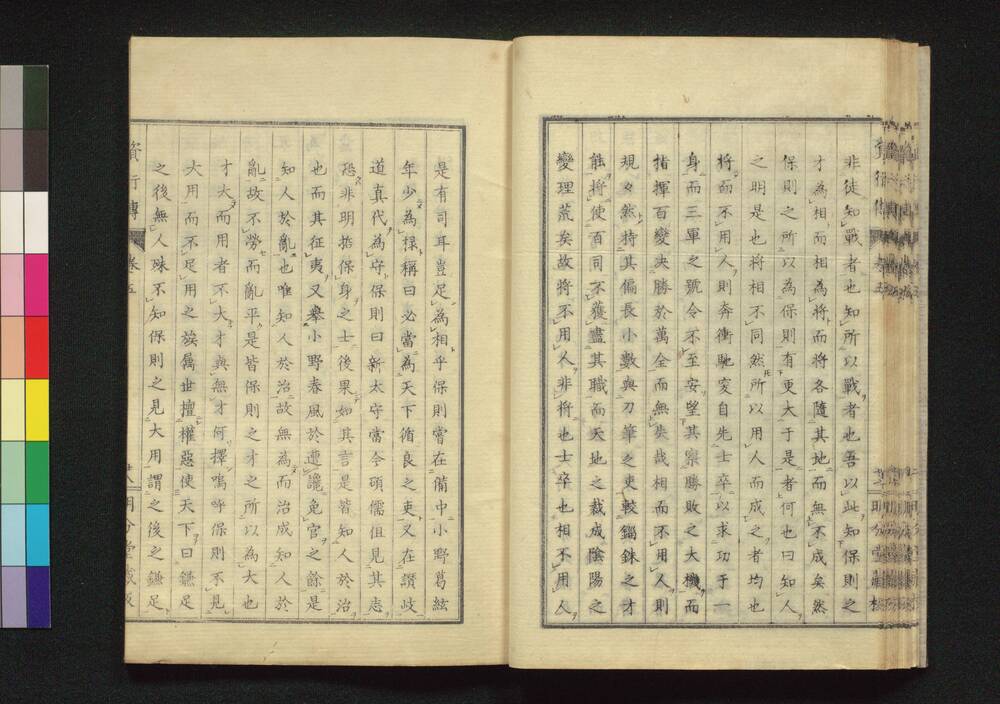 非徒知戰者也知所以戰者也吾以此知保則之
才為相而相為將而將各隨其地而無不成矣然
保則之所以為保則有更大于是者何也曰知人
之明是也將相不同然所以用人而成之者均也
將而不用人則奔衝馳突自先士卒以求功于一
身而三軍之號令不至安望其察勝敗之大機而
指揮百變决勝於萬全而無失哉相而不用人則
規々然持其偏長小數與刀筆之吏較錙銖之才
能將使百司不獲盡其職而天地之裁成陰陽之
變理荒矣故將不用人非將也士卒也相不用人
是有司耳豈足為相乎保則嘗在備中小野葛絃
年少為椽稱曰必當為天下循良之吏又在讚岐
道真代為守保則曰新太守當今碩儒但見其志
恐非明哲保身之士後果如其言是皆知人於治
也而其征夷又舉小野春風於遭讒免官之餘是
知人於亂也唯知人於治故無為而治成知人於
亂故不勞而亂平是皆保則之才之所以為大也
才大而用者不大才與無才何擇嗚呼保則不見
大用而不足用之族屬世擅權惡使天下曰鎌足
之後無人殊不知保則之見大用謂之後之鎌足
資行傳 卷五